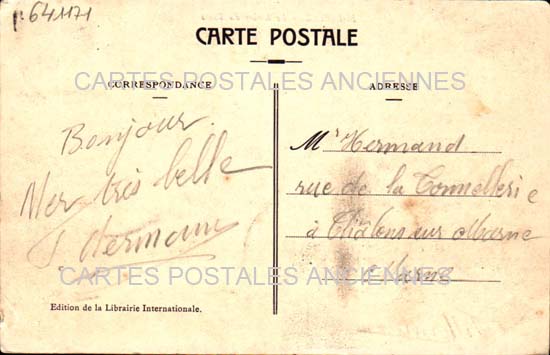 641171
CARTE POSTALE
CARTES POSTALES ANCIENNES
CORRESPONDANCE
ADRESSE
Bonjour.
Mer très belle
Hermann
Mr Hermand
rue de la Tonnellerie
à Châlons sur Marne
Marne
CARTES POSTALES ANCIENNES
Edition de la Librairie Internationale.